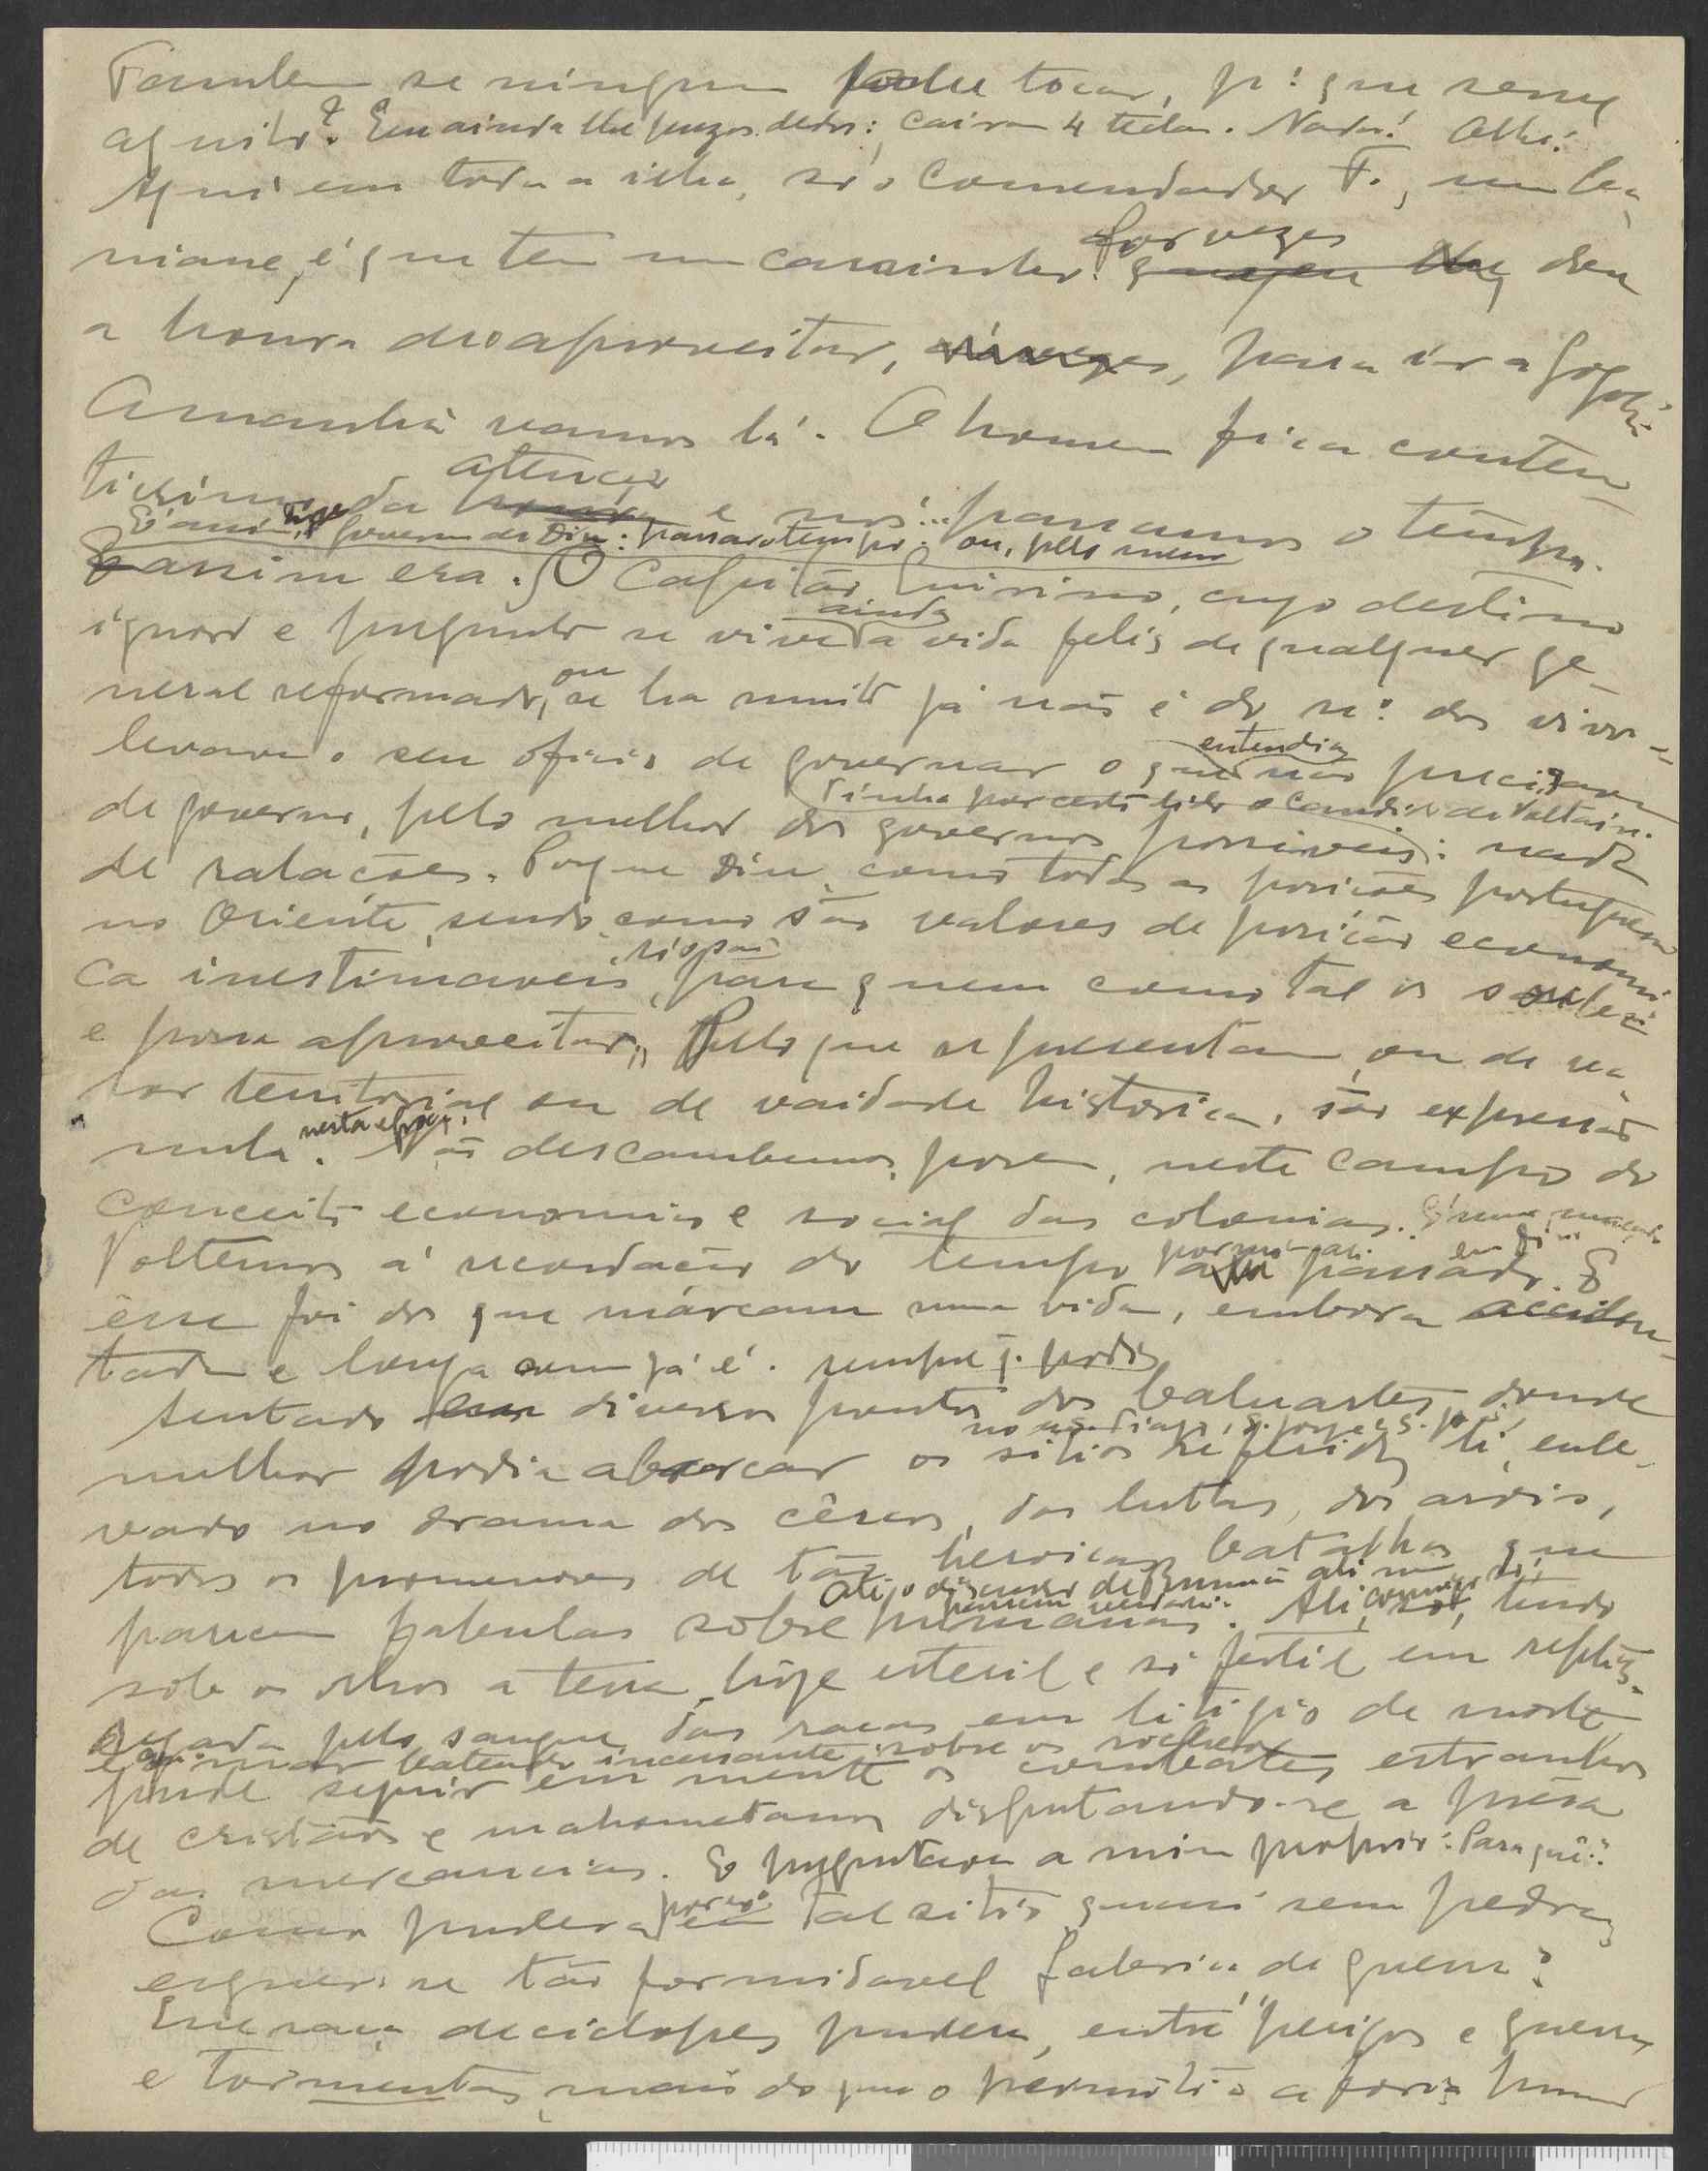 Tambem se ninguem pode tocar, p.ª que serve
aquilo? Eu ainda lhe puz os dedos: Cairam 4 teclas. Nada! Olhe:
Aqui em toda a ilha, só o Comendador F., um ba-
niane, é que tem um carrinho. por vezes deu
a honra de o aproveitar, para ir a Gogolá
Amanhã vamos lá. O homem fica conten-
tissimo da atenção e nós... passamos o tempo.
É assim, hoje, o governo de Diu: passar o tempo: ou, pelo menos
assim era. O Capitão Quirino, cujo destino
ignoro e pergunto se vive ainda a vida felis de qualquer ge-
neral reformado, ou se ha muito já não é do n.º dos vivos-
levava o seu oficio de governar o que entendia não precisava
de governo, pelo melhor dos governos possiveis: nada
Tinha por certo lido o Candido de Voltaire.
de ralações. Porque Diu, como todas as posições portuguesas
no Oriente, sendo como são valores de posição economi-
ca inestimaveis, só o são para quem como tal os souber
e possa aproveitar, pelo que representam, ou de va-
lor territorial ou de vaidade historica, são expressão
nula. nesta epoca. Não descambemos, porem, neste campo do
conceito economico e social das colonias.
Voltemos á recordação do tempo por mim ali passado em Diu. E
êsse foi dos que márcam uma vida, embora acciden-
tada e longa como já é. sempre q. podia
Sentado em diversos pontos dos baluartes, donde
melhor podia abarcar os sitios referidos li, enle-
vado no drama dos cêrcos, das luttas, dos ardis,
todos os promenores de tão heroicas batalhas que
parecem fabulas sobre humanas. Ali, comigo só, tendo
sob os olhos a terra, hoje esteril e só fertil em reptis,
regada pelo sangue das raças em litigio de morte,
e o mar batendo incessante sobre os rochedos
pude seguir em mente os combates estranhos
de cristãos e mahometanos disputando-se a prêsa
das mercancias. E preguntava a mim proprio: Para quê?
Como pudera em tal sitio quasi sem pedras
erguer-se tão formidavel fabrica de guerra?
Que raça de ciclopes pudera, entre perigos e guerras
e tormentas, mais do que o permitia a força humana